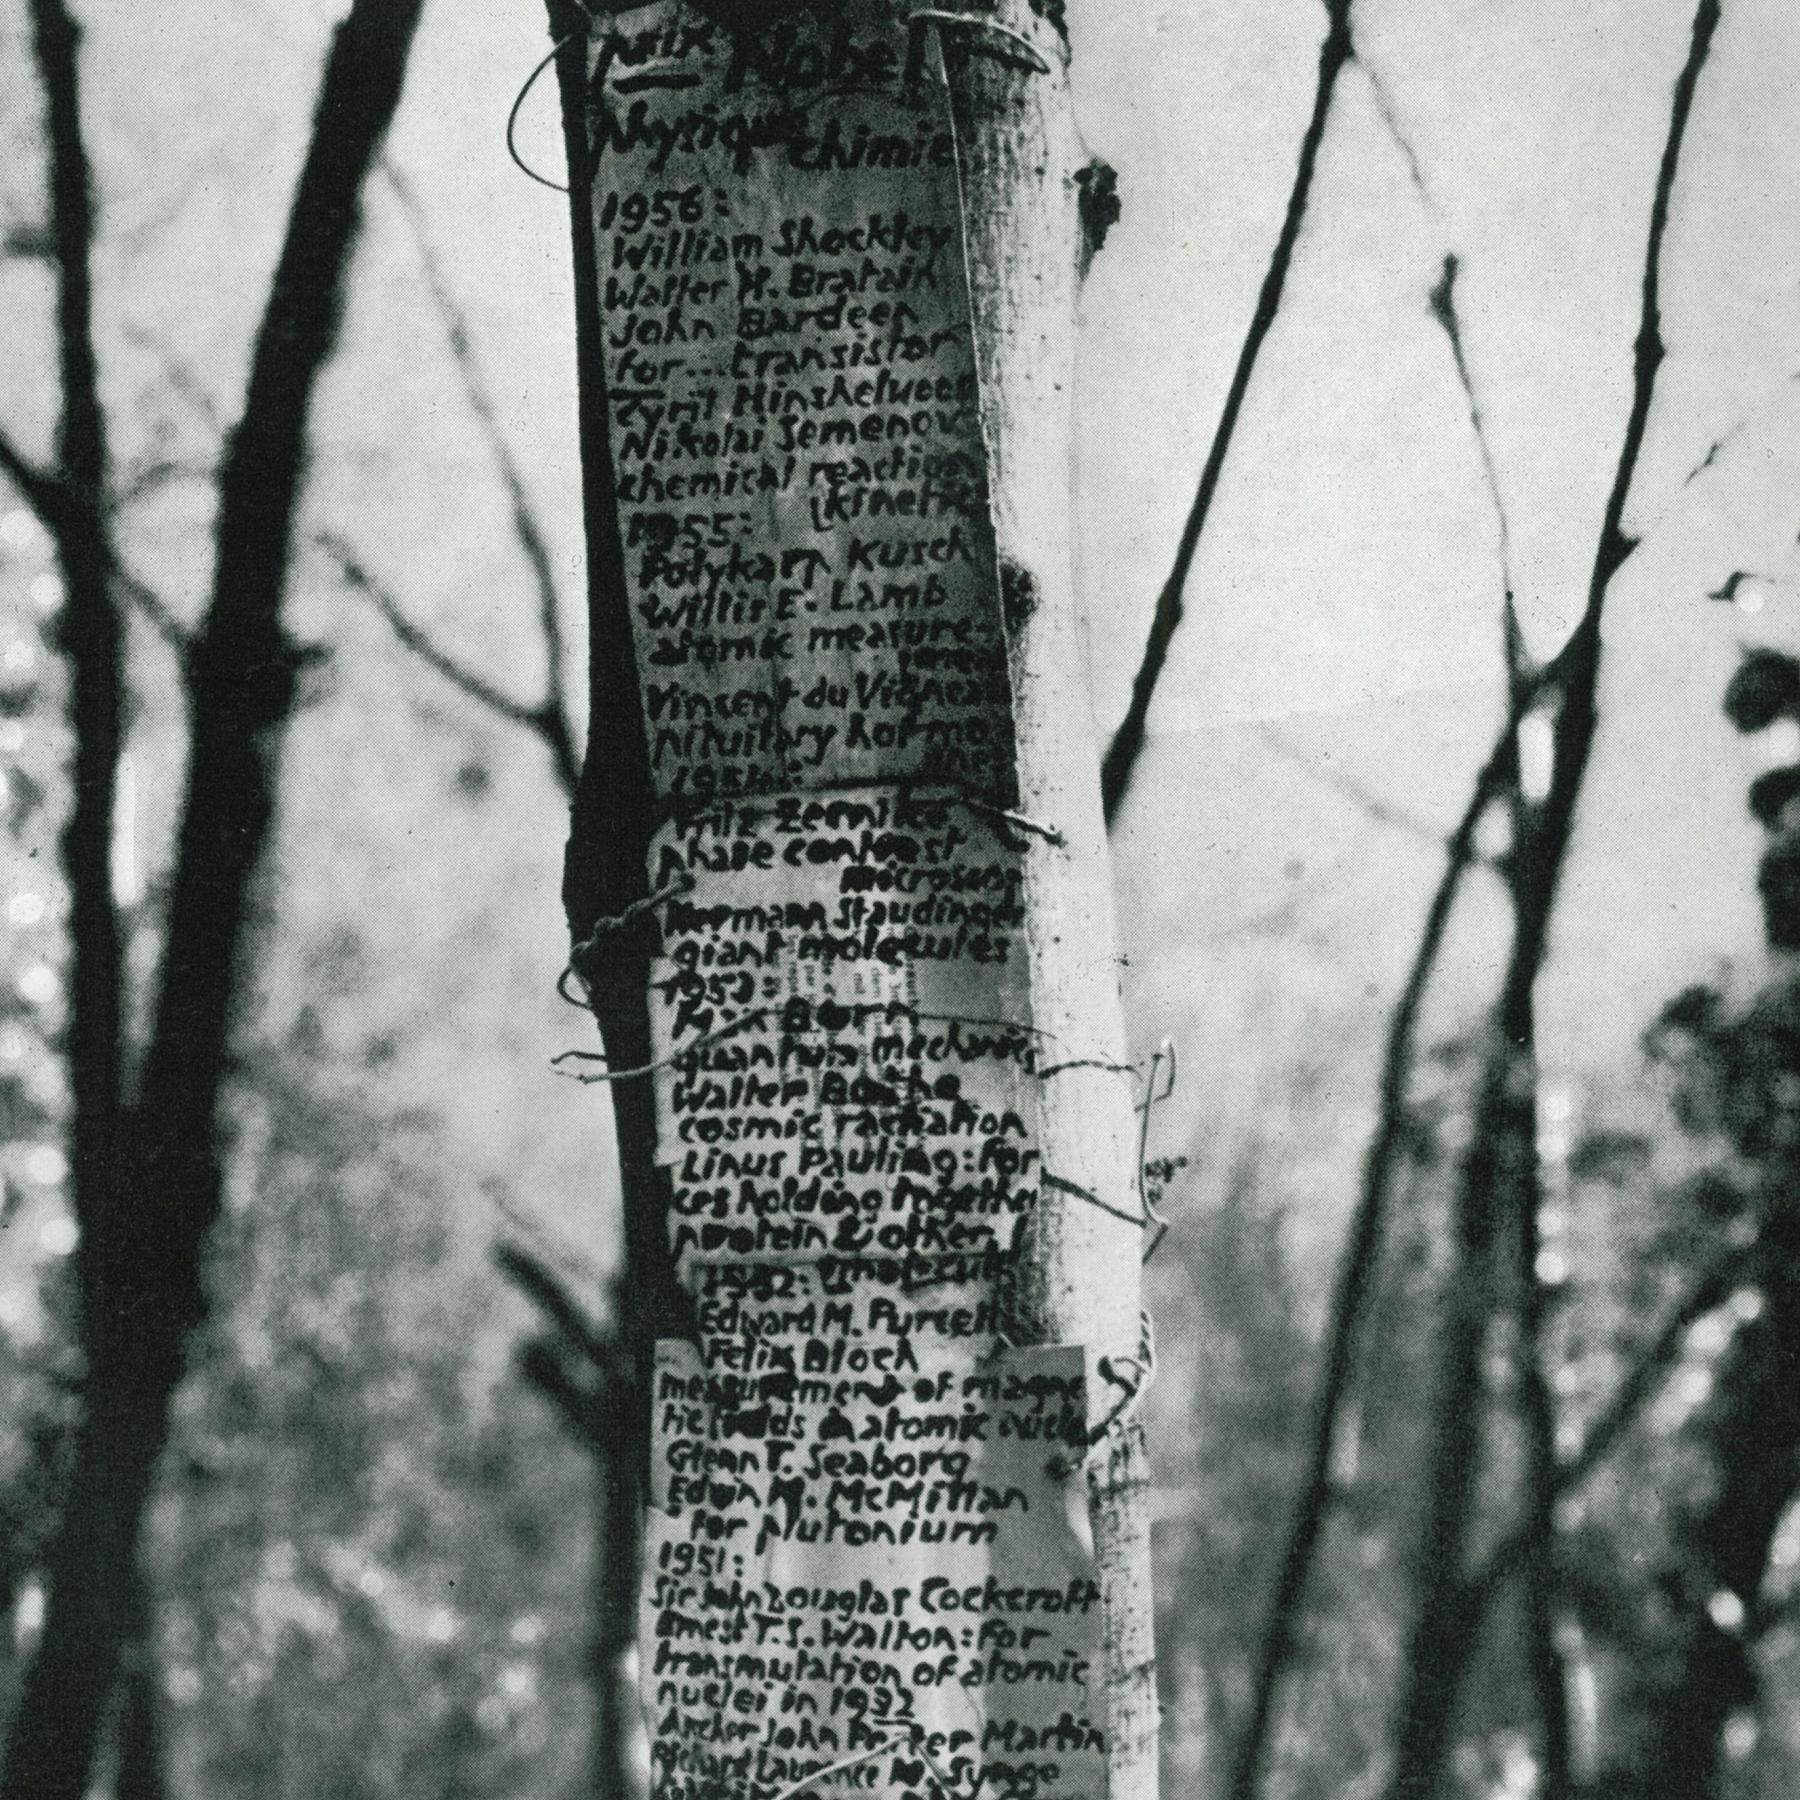 prix Nobel
physique chimie
1956:
William Shockley
Walter H. Bratain
John Bardeen
for...transistor
Cyril Hinshelwood
Nikolai Semenov
chemical reaction
(kinetic
1955:
Polykarp Kusch
Willis E. Lamb
atomic measure-
ment
Vincent du Vignea
pituitary hormo
nes
1954:
Fritz Zernike
phase contrast
microscop
Hermann Staudinger
giant molecules
1953:
Max Born
quantum mechanics
Walter Bothe
cosmic radiation
Linus Pauling: for
ces holding together
protein & other
1952: (molecules
Edward M. Purcell
Felix Bloch
measurement of magne
tic fields in atomic nuclei
Glenn T. Seaborg
Edwin M. McMillan
for plutonium
1951:
Sir John Douglas Cockcroft
Ernest T.S. Walton: for
transmutation of atomic
nuclei in 1932
Archer John Porter Martin
Richard Laurence M. Synge